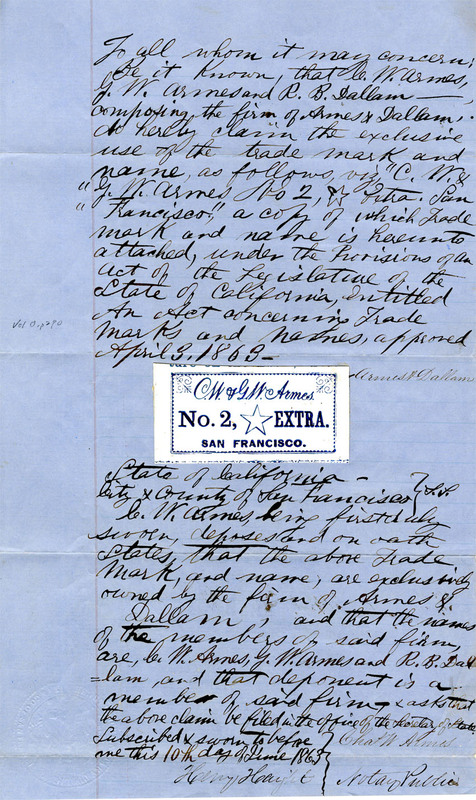 To all whom it may concern;
Be it Known, that C. W. Armes,
G. W. Armes and R. B. Dallam—
composing the firm of Armes & Dallam,
do hereby claim the exclusive
use of the trade mark and
name, as follows, viz "C. W. &
" G. W. Armes, No 2, ☆ Extra. San
" Francisco," a copy of which Trade
mark and name is hereunto
attached, under the Provisions of an
Act of the Legislative of the
State of California, Entitled
An Act concerning Trade
Marks and Names, approved
April 3, 1863—
Armes & Dallam
C.W. & G.W. Armes
No. 2, ☆ EXTRA.
SAN FRANCISCO.
State of California—
City & County of San Francisco } S.S.
C. W. Armes, being first duly
sworn, deposes and on oath
States, that the above Trade
Mark, and name, are exclusively
owned by the firm of Armes &
Dallam, and that the names
of the members of said firm,
are, C. W. Armes, G. W. Armes and R. B. Dal
=lam, and that deponent is a
member of said firm & asks that
the above claim be filed in the office of the of State
Subscribed & sworn to before
me this 10th day of June 1863
Chas W Armes
Henry Haight
Notary Public